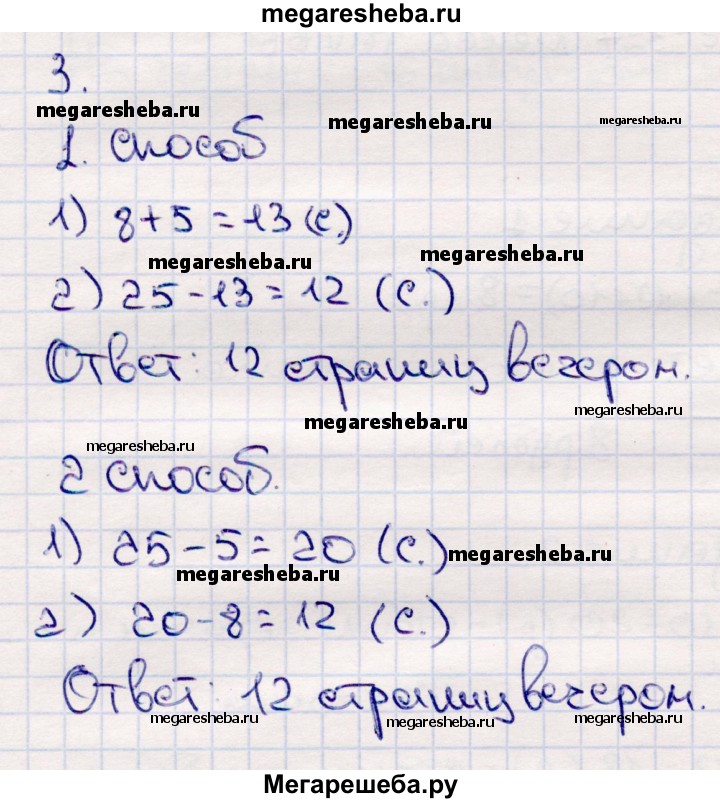 megaresheba.ru
3.
megaresheba.ru
megaresheba.ru
megaresheba.ru
1. способ
1) 8+5=13 (с.)
megaresheba.ru
megaresheba.ru
2) 25-13=12 (с.)
Ответ: 12 страниц вечером.
megaresheba.ru
megaresheba.ru
megaresheba.ru
2 способ.
1) 25-5=20 (с.)
megaresheba.ru
megaresheba.ru
2) 20-8=12 (с.)
Ответ: 12 страниц вечером.
megaresheba.ru
megaresheba.ru
megaresheba.ru
Мегарешеба.ру